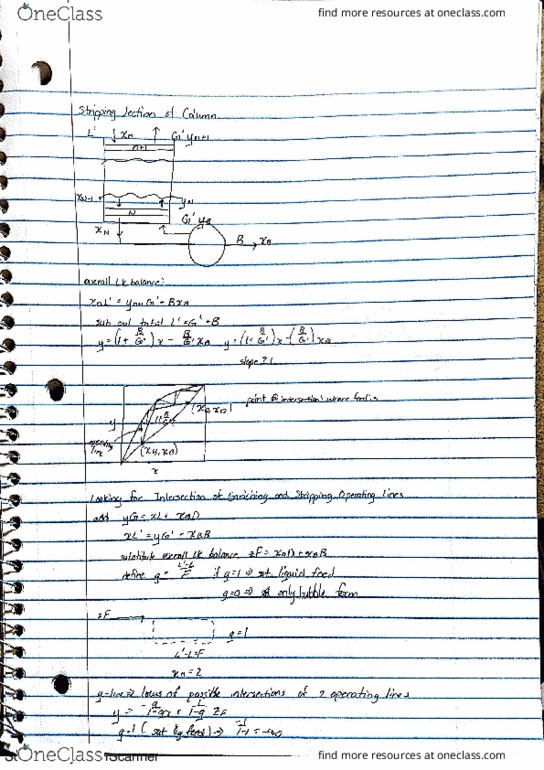 OneClass
find more resources at oneclass.com
Stripping Section of Column
L' xn G' yn+1
n+1
xN-1 yN
N G' yB
xN
B xB
overall LK balance:
xnL' = yn+1G' + BxB
sub out total L' = G' + B
y = (1 + B/G')x - B/G' xB y = (1 + B/G')x - (B/G')xB
slope ≥ 1
y
line
(xB, xB)
x
point @ intersection: where feed is
Looking for Intersection of Enriching and Stripping Operating Lines
add yG = xL + xDD
xL' = yG' + xBB
substitute overall LK balance, zF = xDD + xBB
define q = L'-L/F if q=1 ⇒ sat. liquid feed
q=0 ⇒ only bubble form
zF
q=1
L'-L=F
q-line ⇒ locus of possible intersections of 2 operating lines
y =
q=1 (sat liq feed) ⇒
OneClass
find more resources at oneclass.com